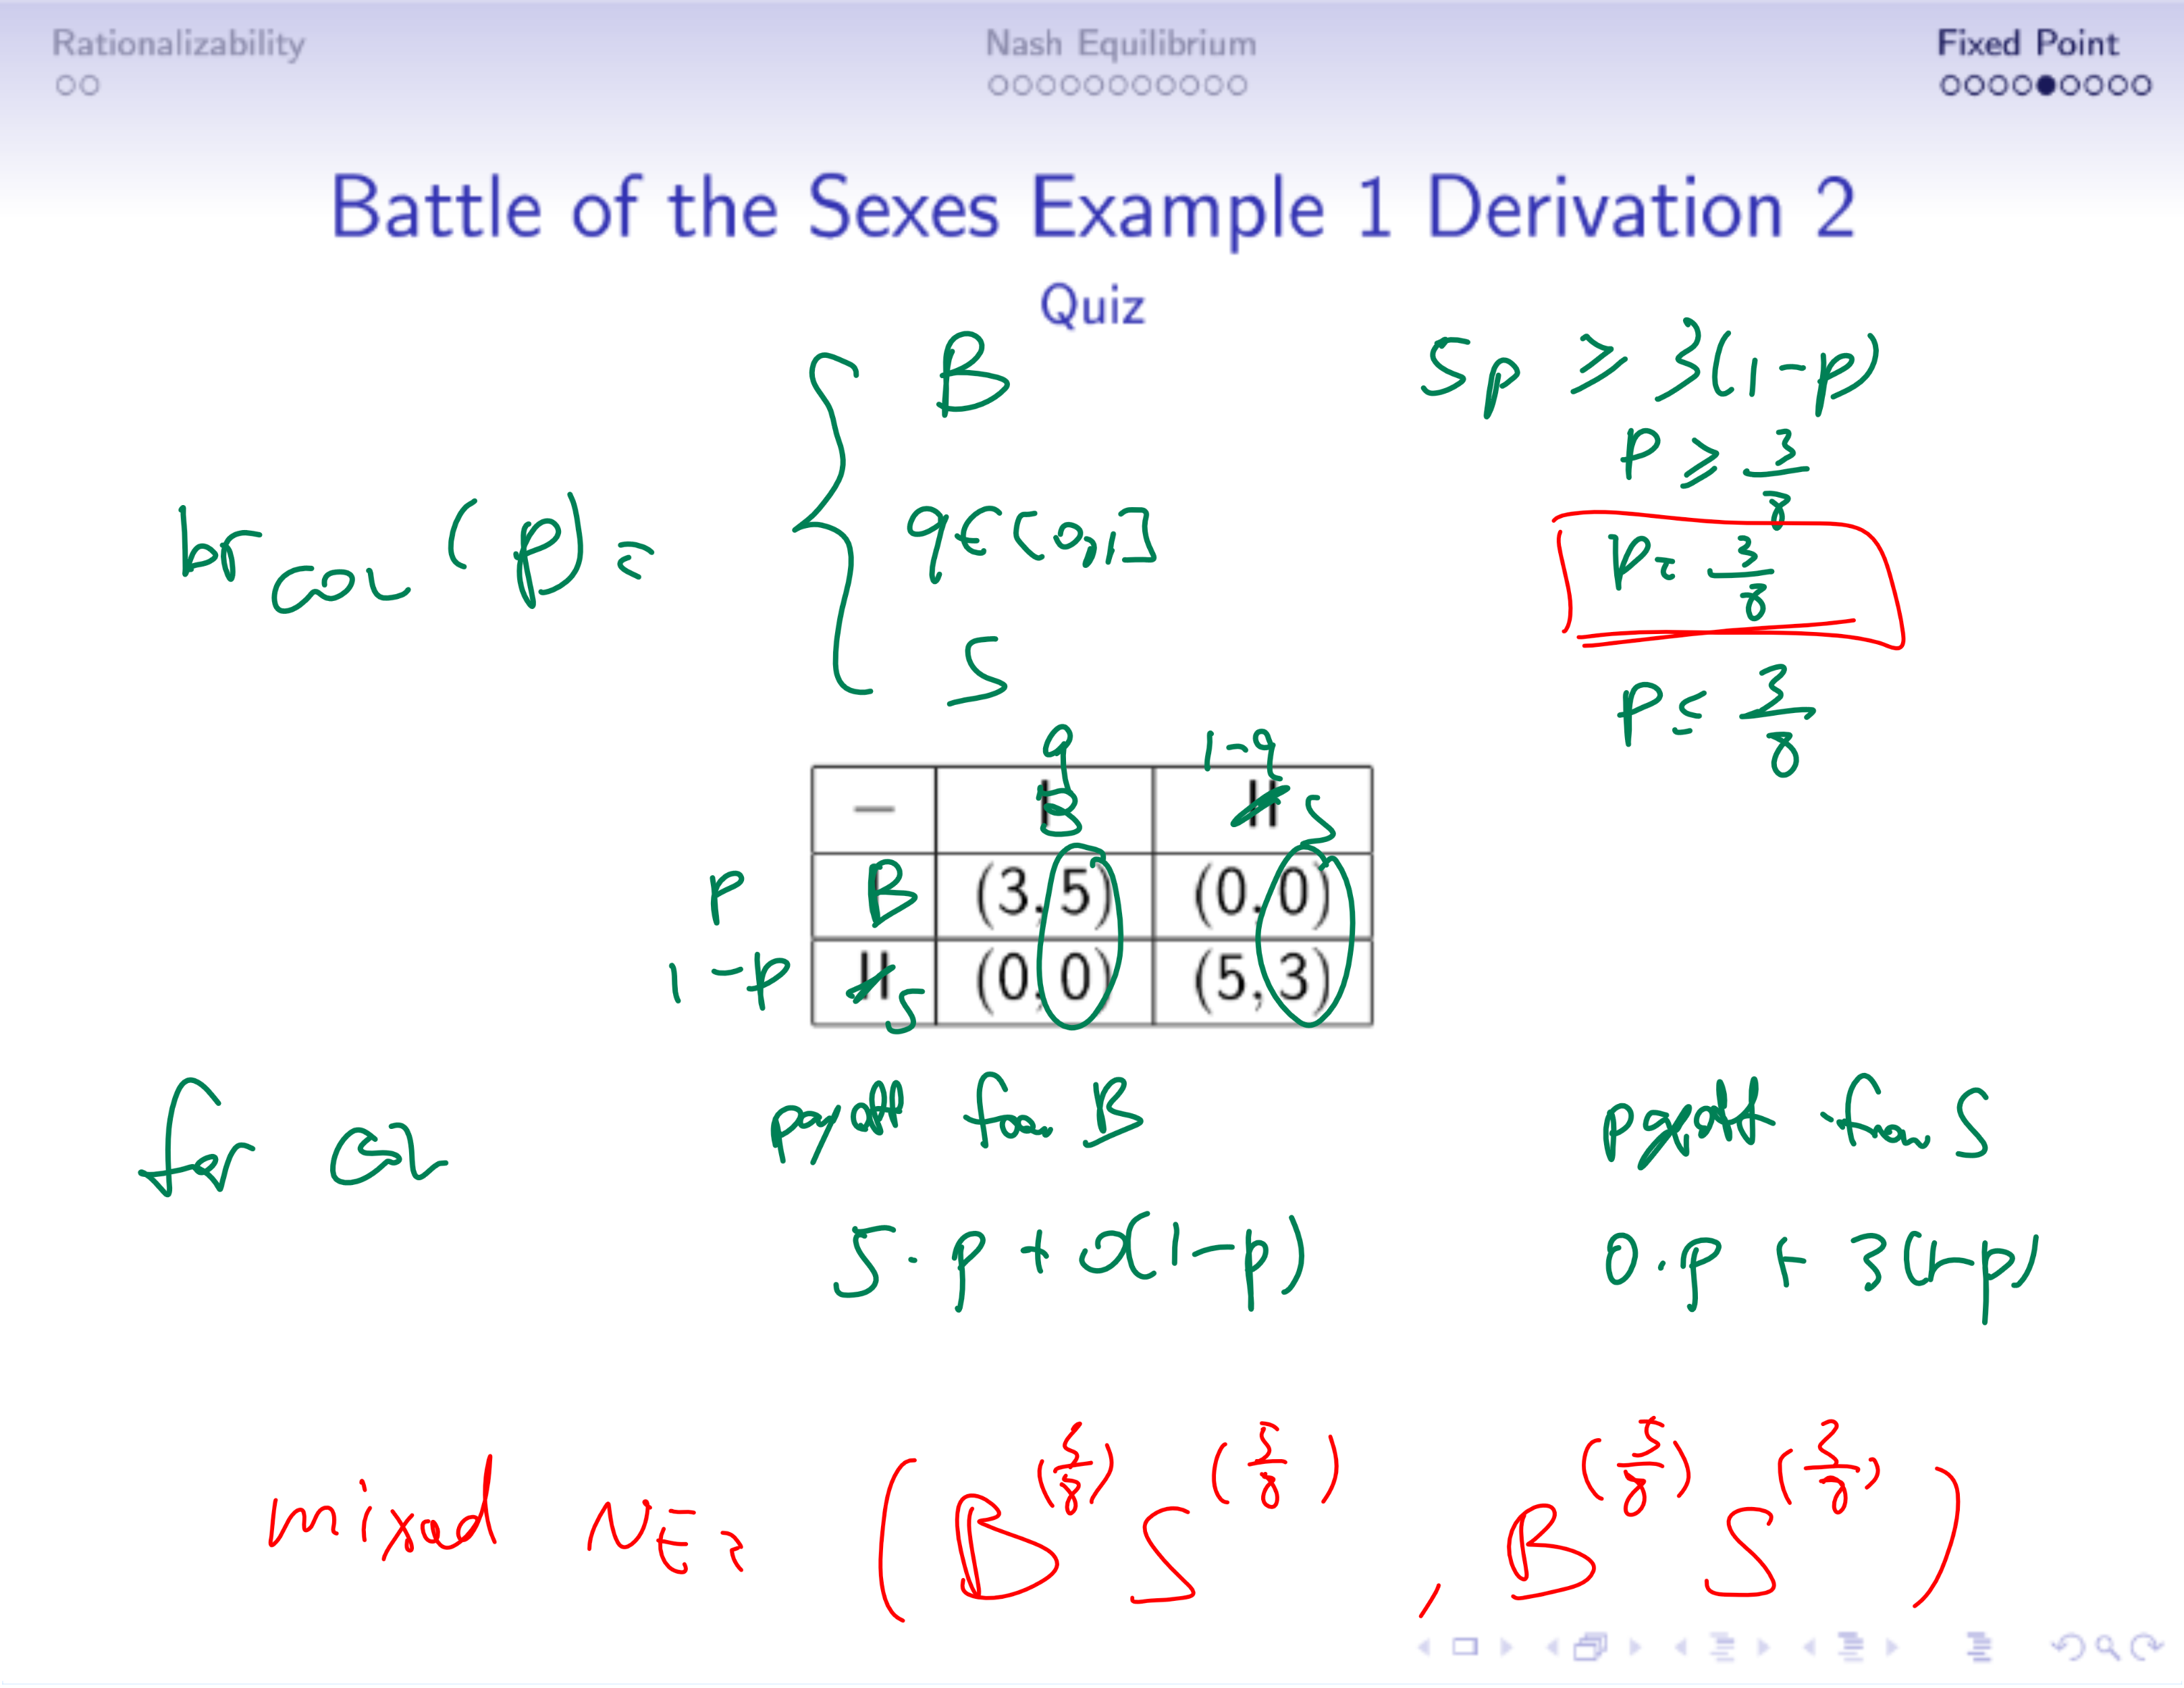 Rationalizability Nash Equilibrium Fixed Point
Battle of the Sexes Example 1 Derivation 2
Quiz
B 5p ≥ 3(1-p)
p ≥ 3/8
br col (p) = { q ∈ [0,1] p = 3/8
S p ≤ 3/8
q 1-q
— B S
p B (3, 5) (0, 0)
1-p S (0, 0) (5, 3)
for col payoff from B payoff from S
5·p + 0(1-p) 0·p + 3(1-p)
mixed NE = (B^(3/8) S^(5/8), B^(5/8) S^(3/8))